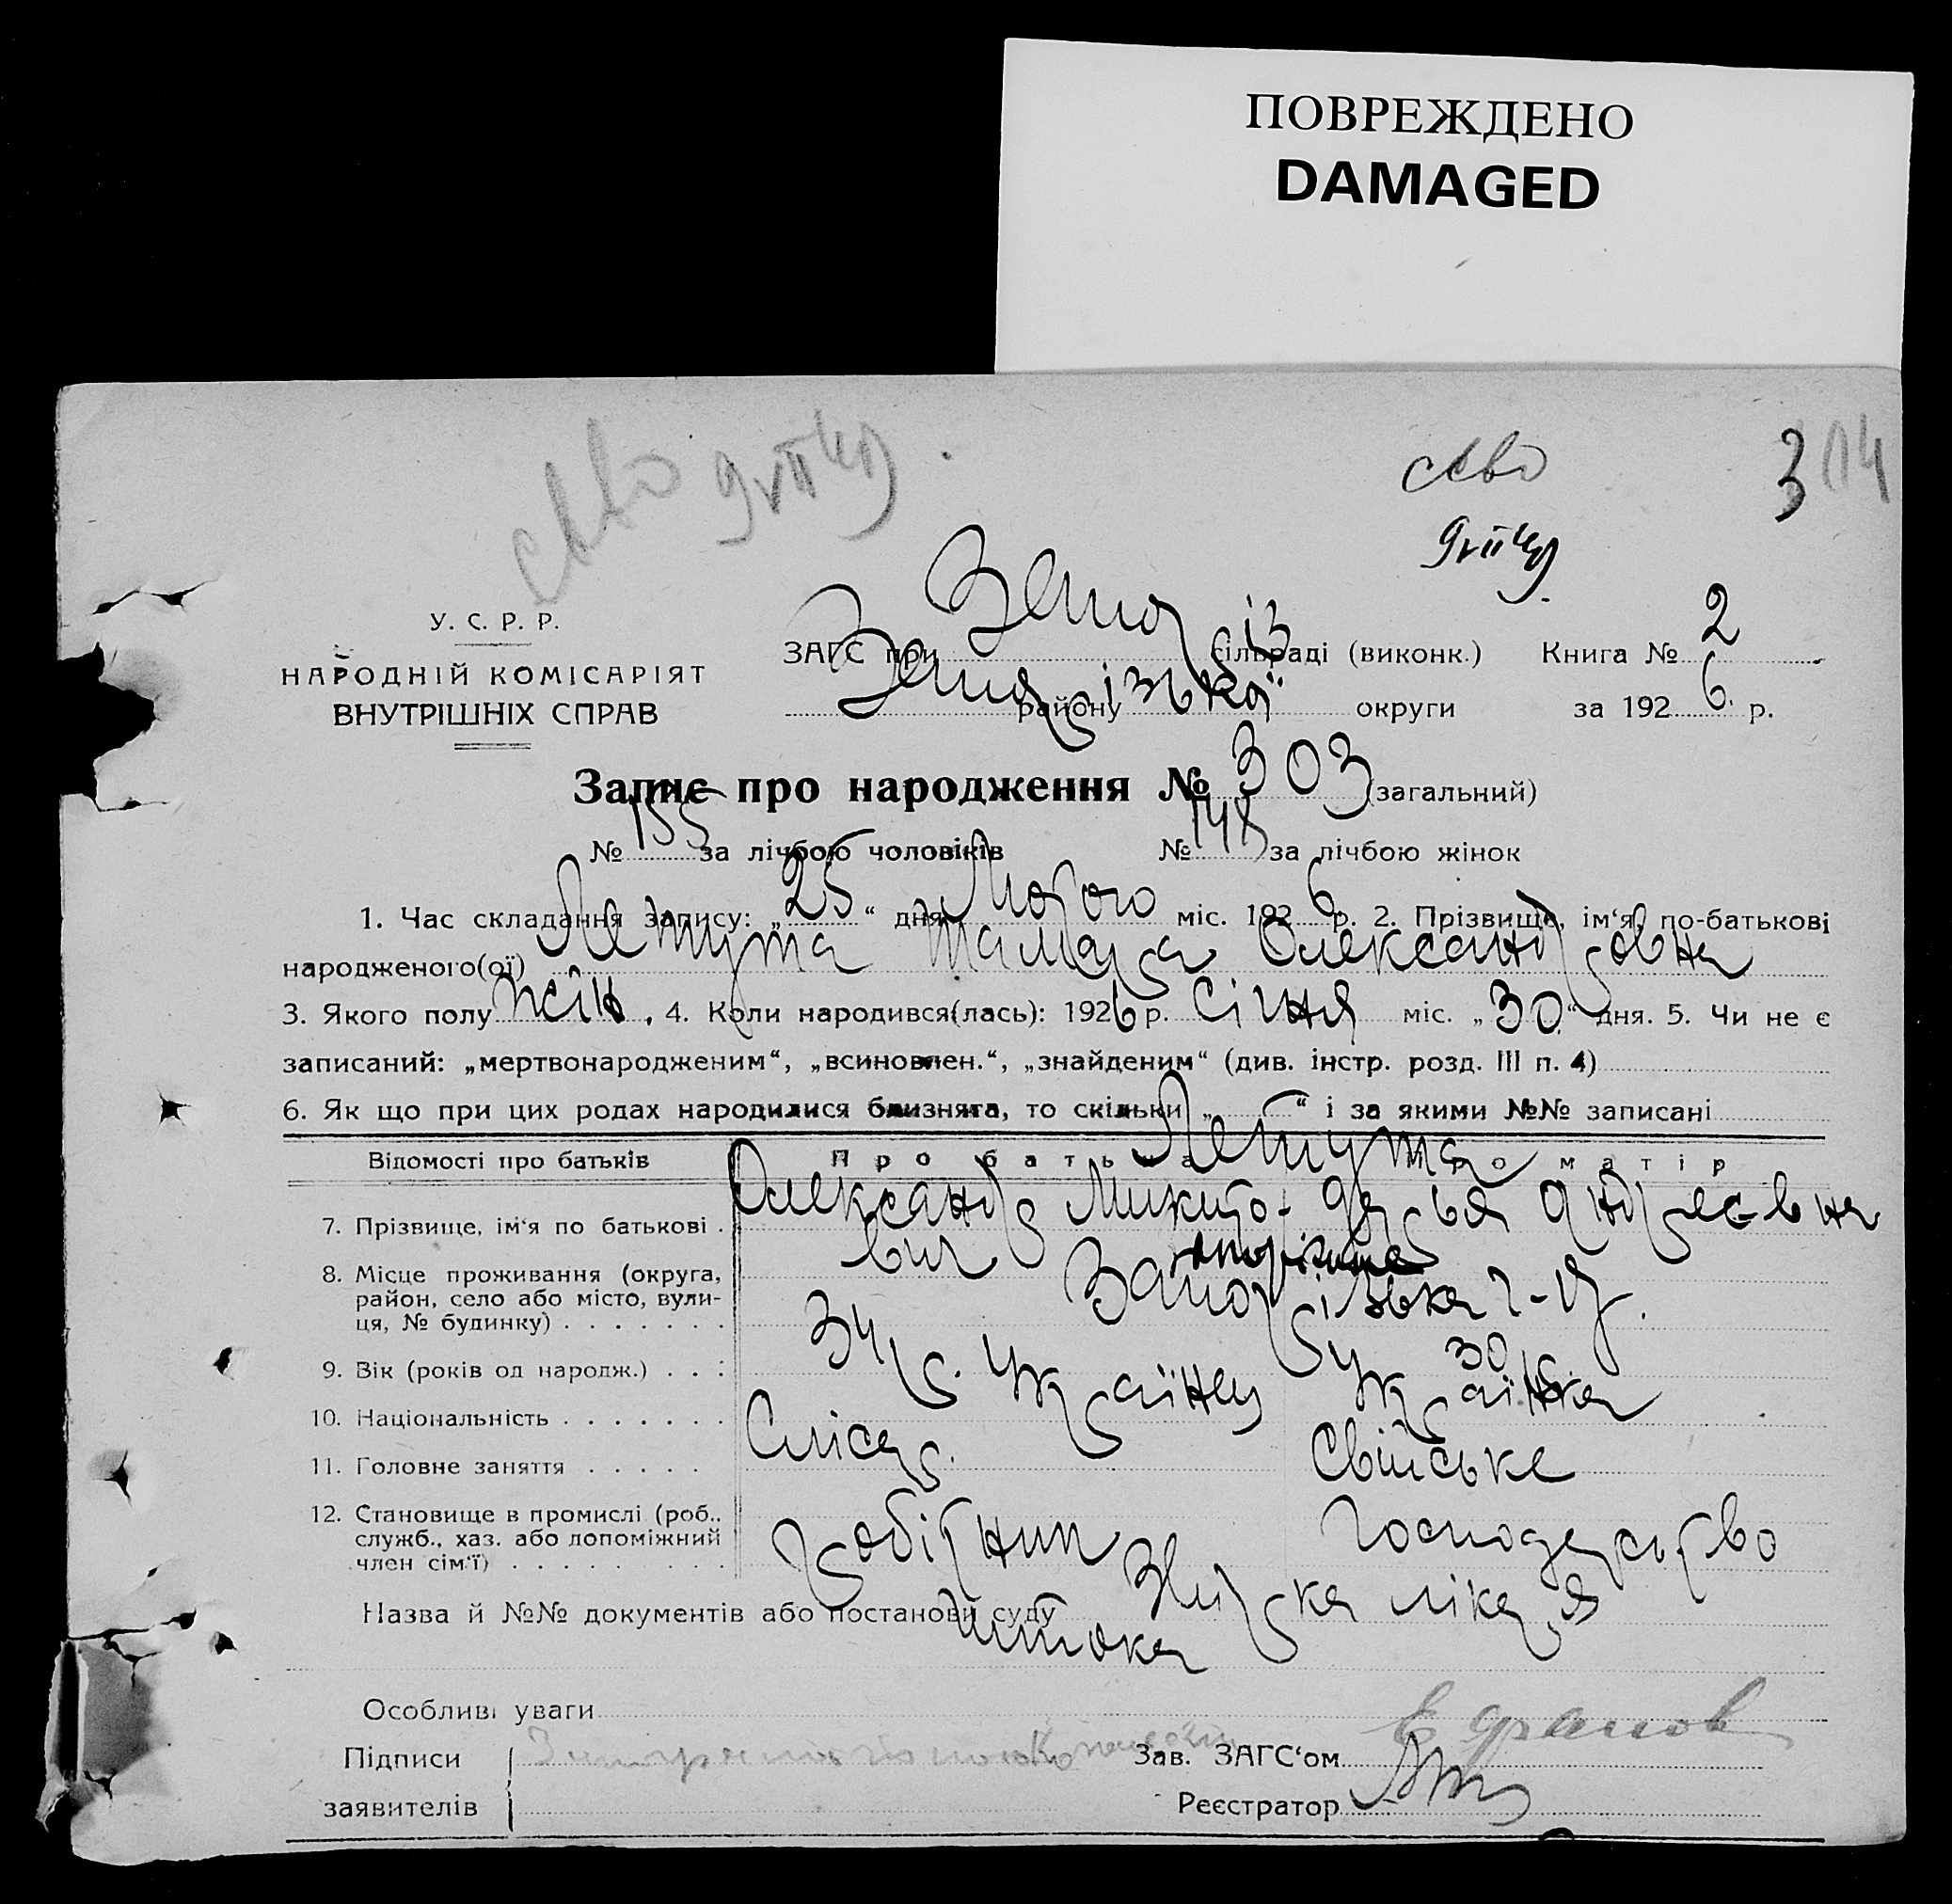 ПОВРЕЖДЕНО
DAMAGED
3 14
У. С. Р. Р.
НАРОДНІЙ КОМІСАРІЯТ
ВНУТРІШНІХ СПРАВ
ЗАГС при Запоріз сільраді (виконк.) Книга № 2
району Запорізької округи за 1926 р.
Запис про народження № 303 (загальний)
№ 155 за лічбою чоловіків № 148 за лічбою жінок
1. Час складання запису: „25“ дня Лютого міс. 1926 р. 2. Прізвище, ім‘я, по-батькові
народженого(ої) Лепута Тамара Олександровна
3. Якого полу жін. 4. Коли народився(лась): 1926 р. Січня міс. „30“ дня. 5. Чи не є
записаний: „мертвонародженим“, „всиновлен.“, „знайденим“ (див. інстр. розд. III п. 4)
6. Як що при цих родах народилися близнята, то скільки „ “ і за якими №№ записані
Відомості про батьків Про батька Про матір
Лепута
7. Прізвище, ім‘я по батькові . Олександр Микито- Дарья Андреєвна
вич
8. Місце проживання (округа,
район, село або місто, вули-
ця, № будинку) . . . . . . . Запорізька
9. Вік (років од народж.) . . : 34 р. 30 р.
10. Національність . . . . . . . Українец Українка
11. Головне заняття . . . . . Слісар. Свійське
12. Становище в промислі (роб..
служб., хаз. або допоміжний
член сім‘ї) . . . . . . . . . робітник господарство
Назва й №№ документів або постанови суду
Особливі уваги
Підписи Зав. ЗАГС‘ом
заявителів Реєстратор